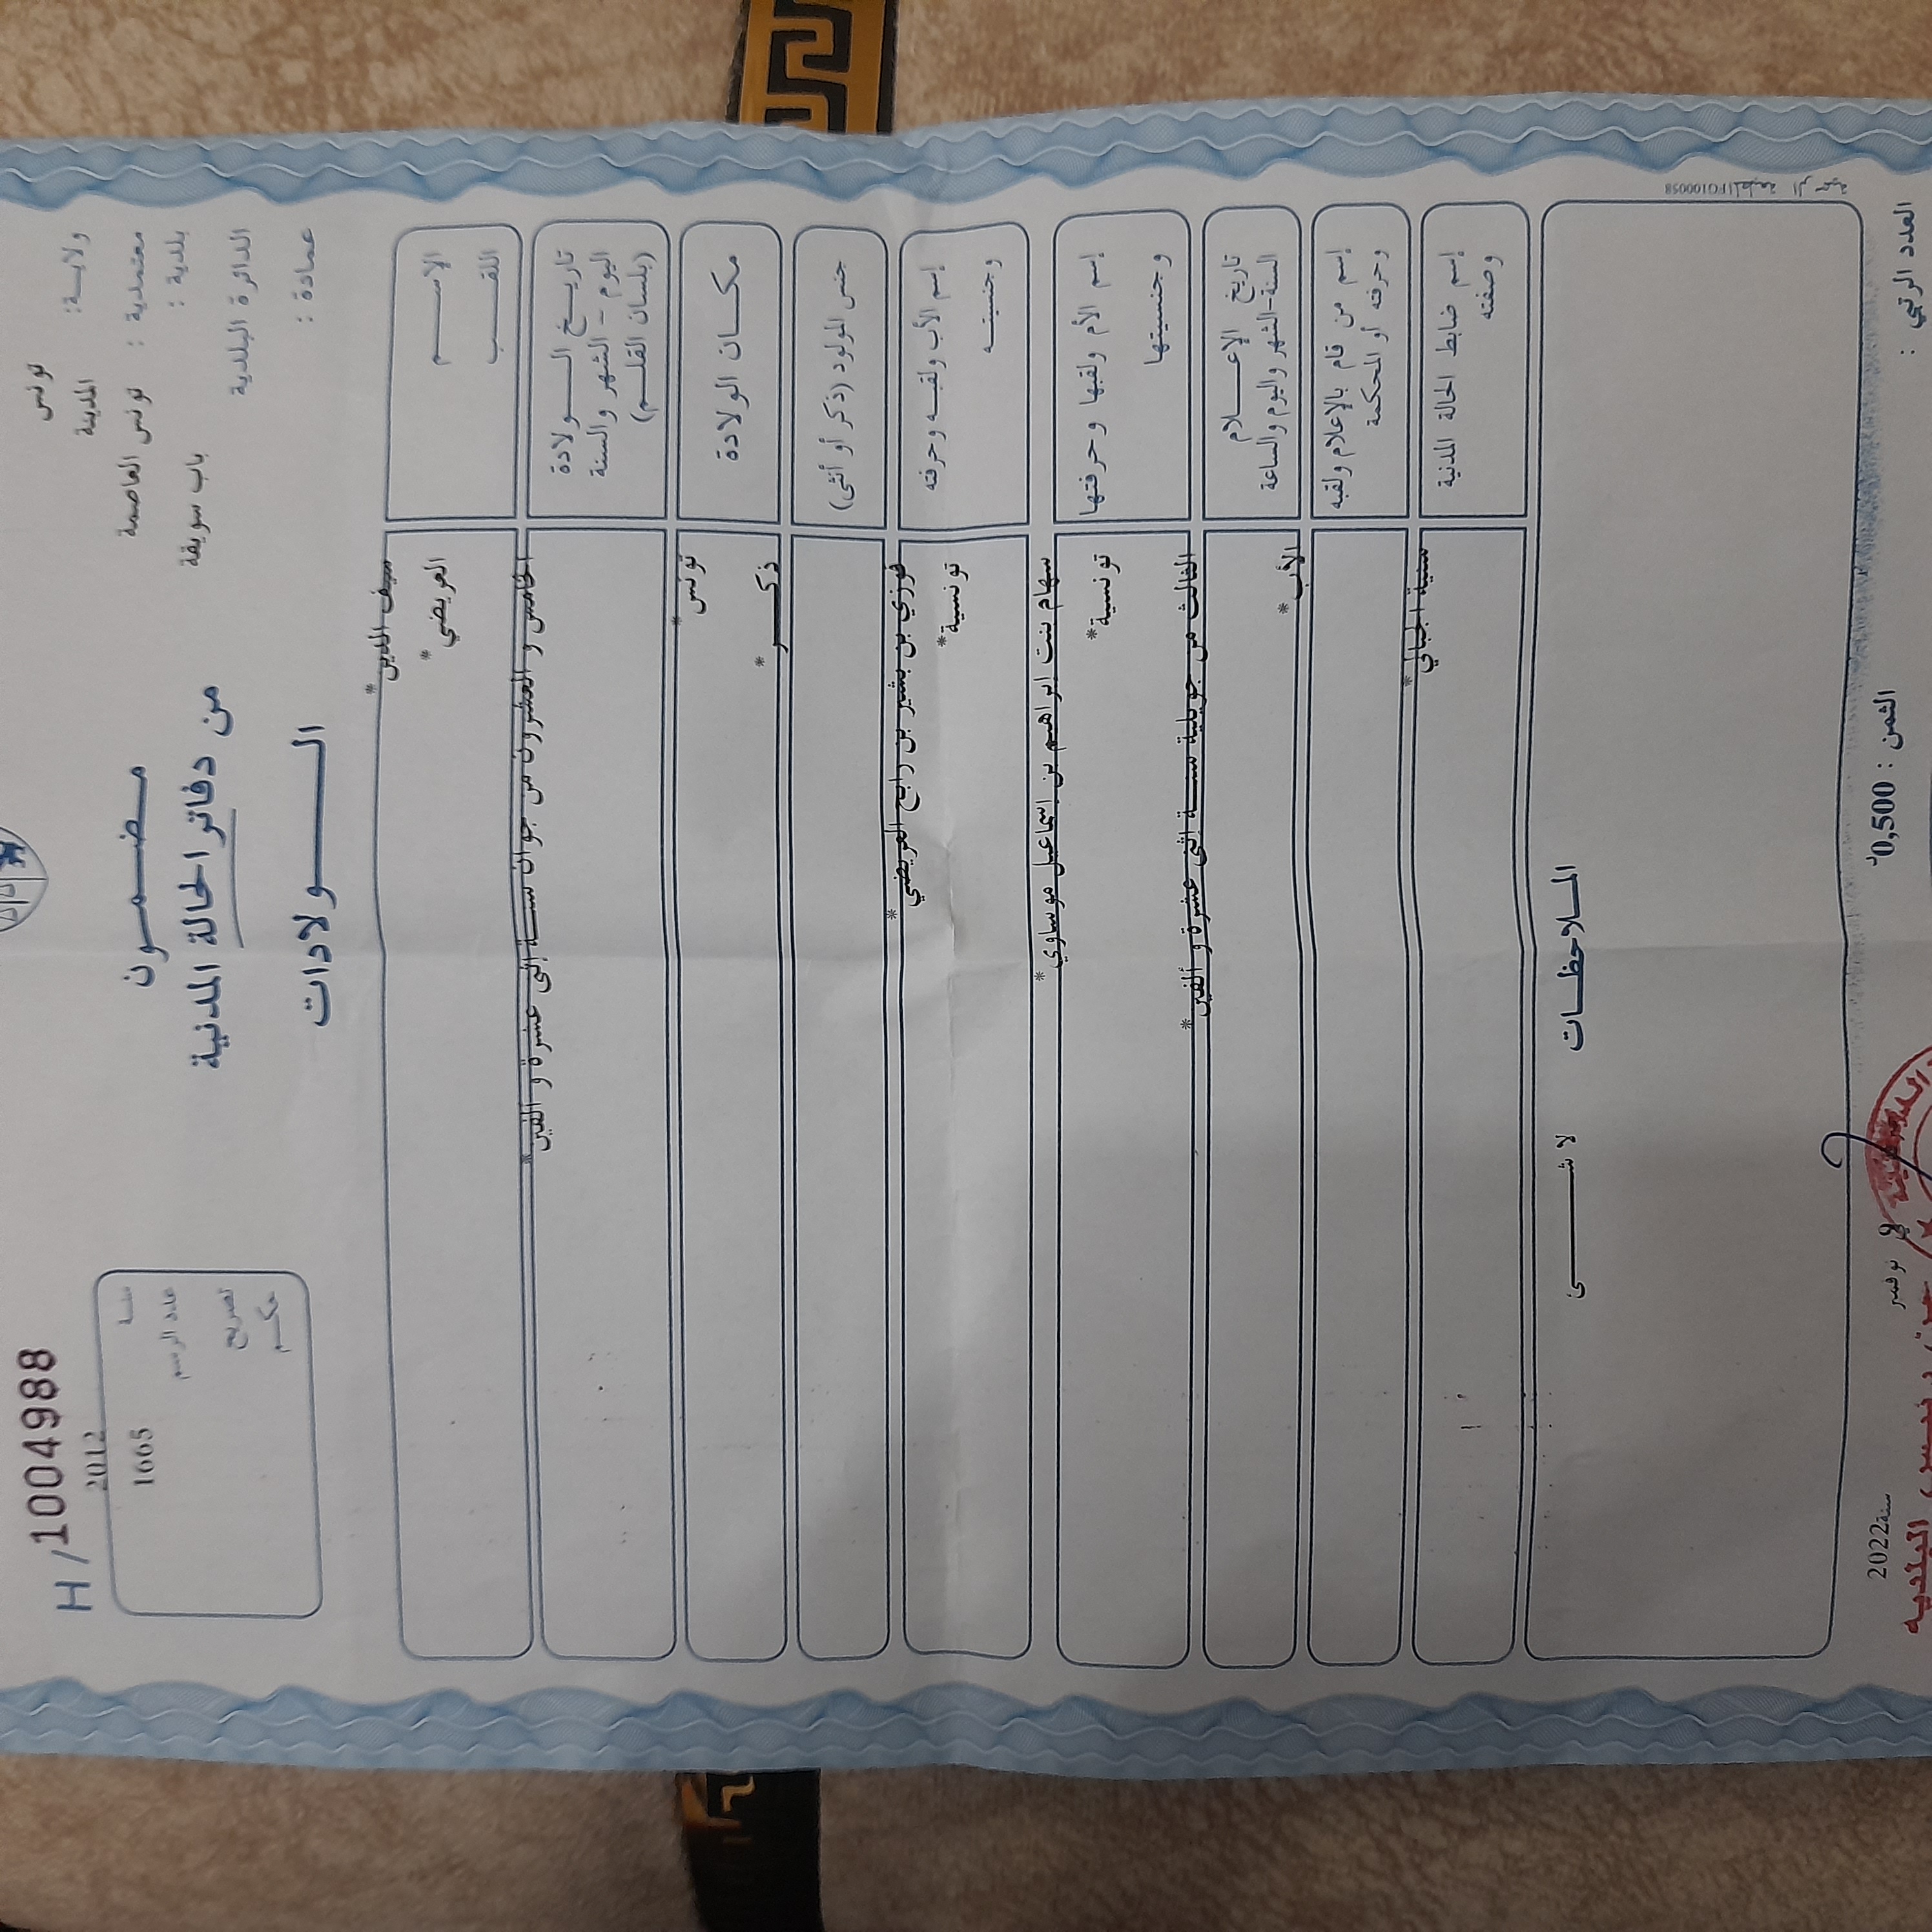 H / 1004988
ولاية: تونس
المدينة
معتمدية : تونس العاصمة
بلدية : باب سويقة
الدائرة البلدية
عمادة :
مضمون
من دفاتر الحالة المدنية
الولادات
2012
سنة
1665
عدد الرسم
تصريح
حكم
الاسم
سيف الدين*
اللقب
العريضي*
تاريخ الولادة
اليوم - الشهر والسنة
(بلسان القلم)
الخامس و العشرون من جوان سنة اثنى عشرة و الفين*
مكان الولادة
تونس*
جنس المولود (ذكر أو أنثى)
ذكر*
إسم الأب ولقبه وحرفته
فوزي بن بشير بن رابح العريضي*
وجنسيته
تونسية*
إسم الأم ولقبها وحرفتها
سهام بنت ابراهيم بن اسماعيل موساوي*
وجنسيتها
تونسية*
تاريخ الإعلام
السنة-الشهر واليوم والساعة
الثالث من جويلية سنة اثنى عشرة و ألفين*
إسم من قام بالإعلام ولقبه
وحرفته أو المحكمة
الأب*
إسم ضابط الحالة المدنية
وصفته
سنية الجبالي*
الملاحظات
لا شئ
المطبعة الرسميةFG100058
العدد الرتبي :
الثمن : 0,500د
في نوفمبر سنة2022